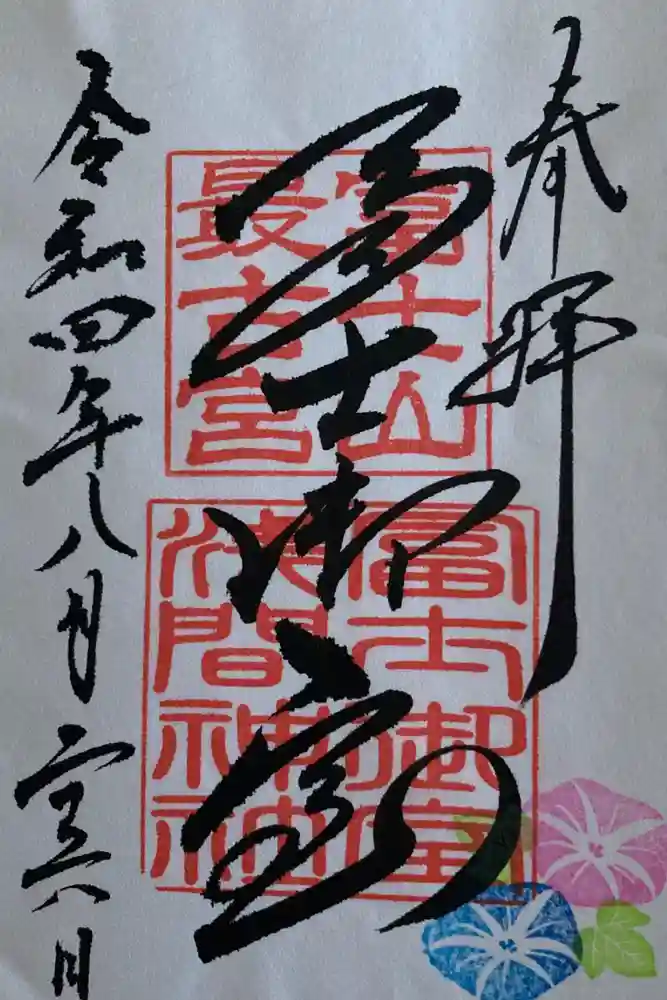 奉拝
冨士御室
富士山
最古宮
冨士御室
浅間神社
令和四年八月二十六日